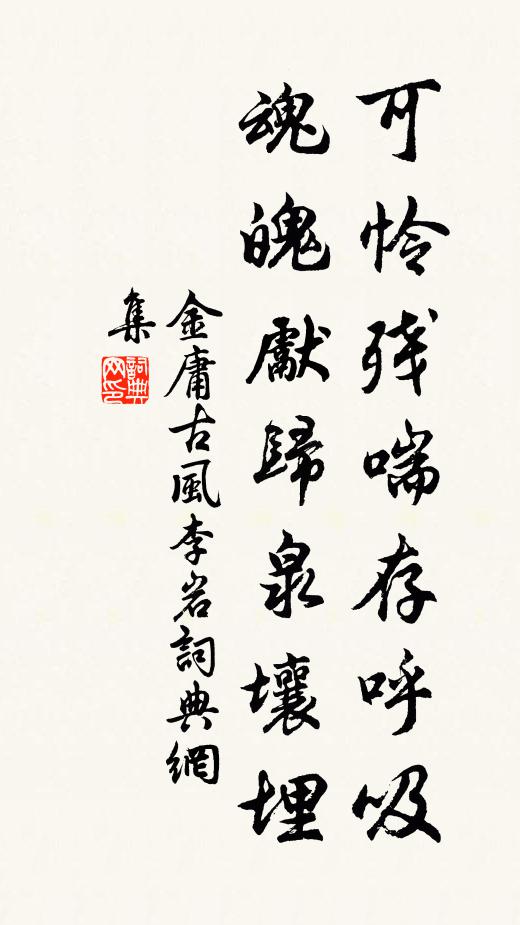 可怜残喘存呼吸
魂魄獻歸泉壤埋
金庸古風李岩詞典網
集
詞典
网印